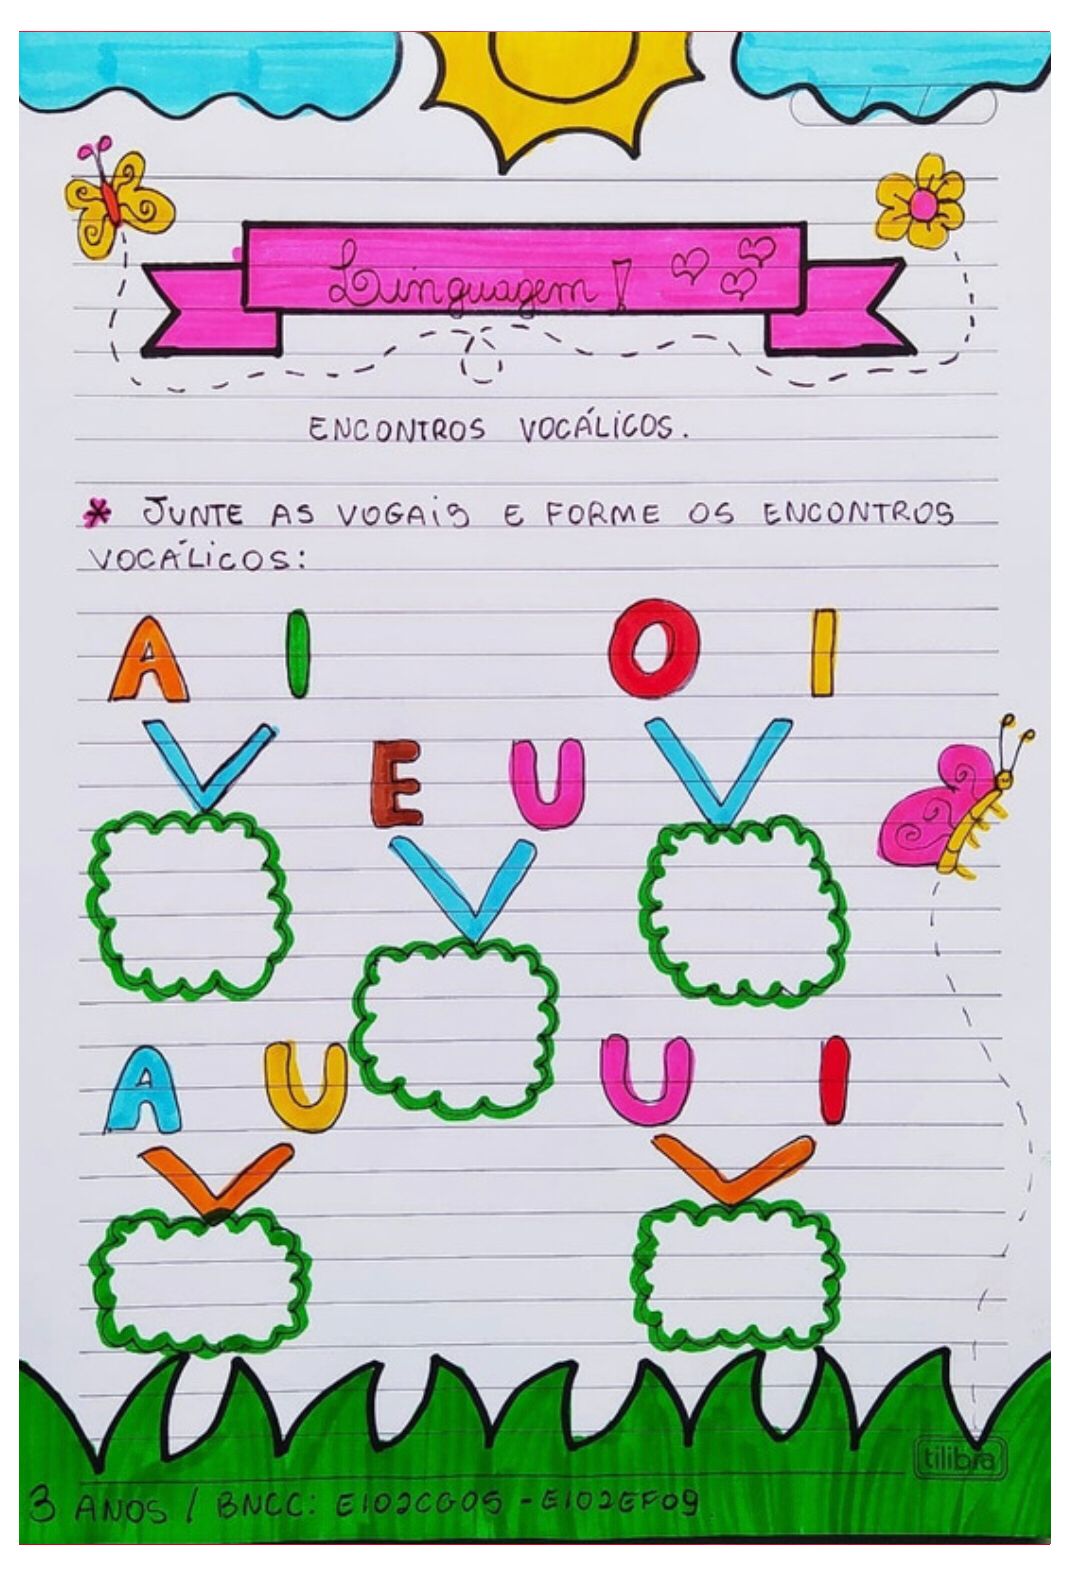 Linguagem!
ENCONTROS VOCÁLICOS.
* JUNTE AS VOGAIS E FORME OS ENCONTROS
VOCÁLICOS:
A I O I
E U
A U U I
tilibra
3 ANOS / BNCC: EI02CG05 - EI02EF09